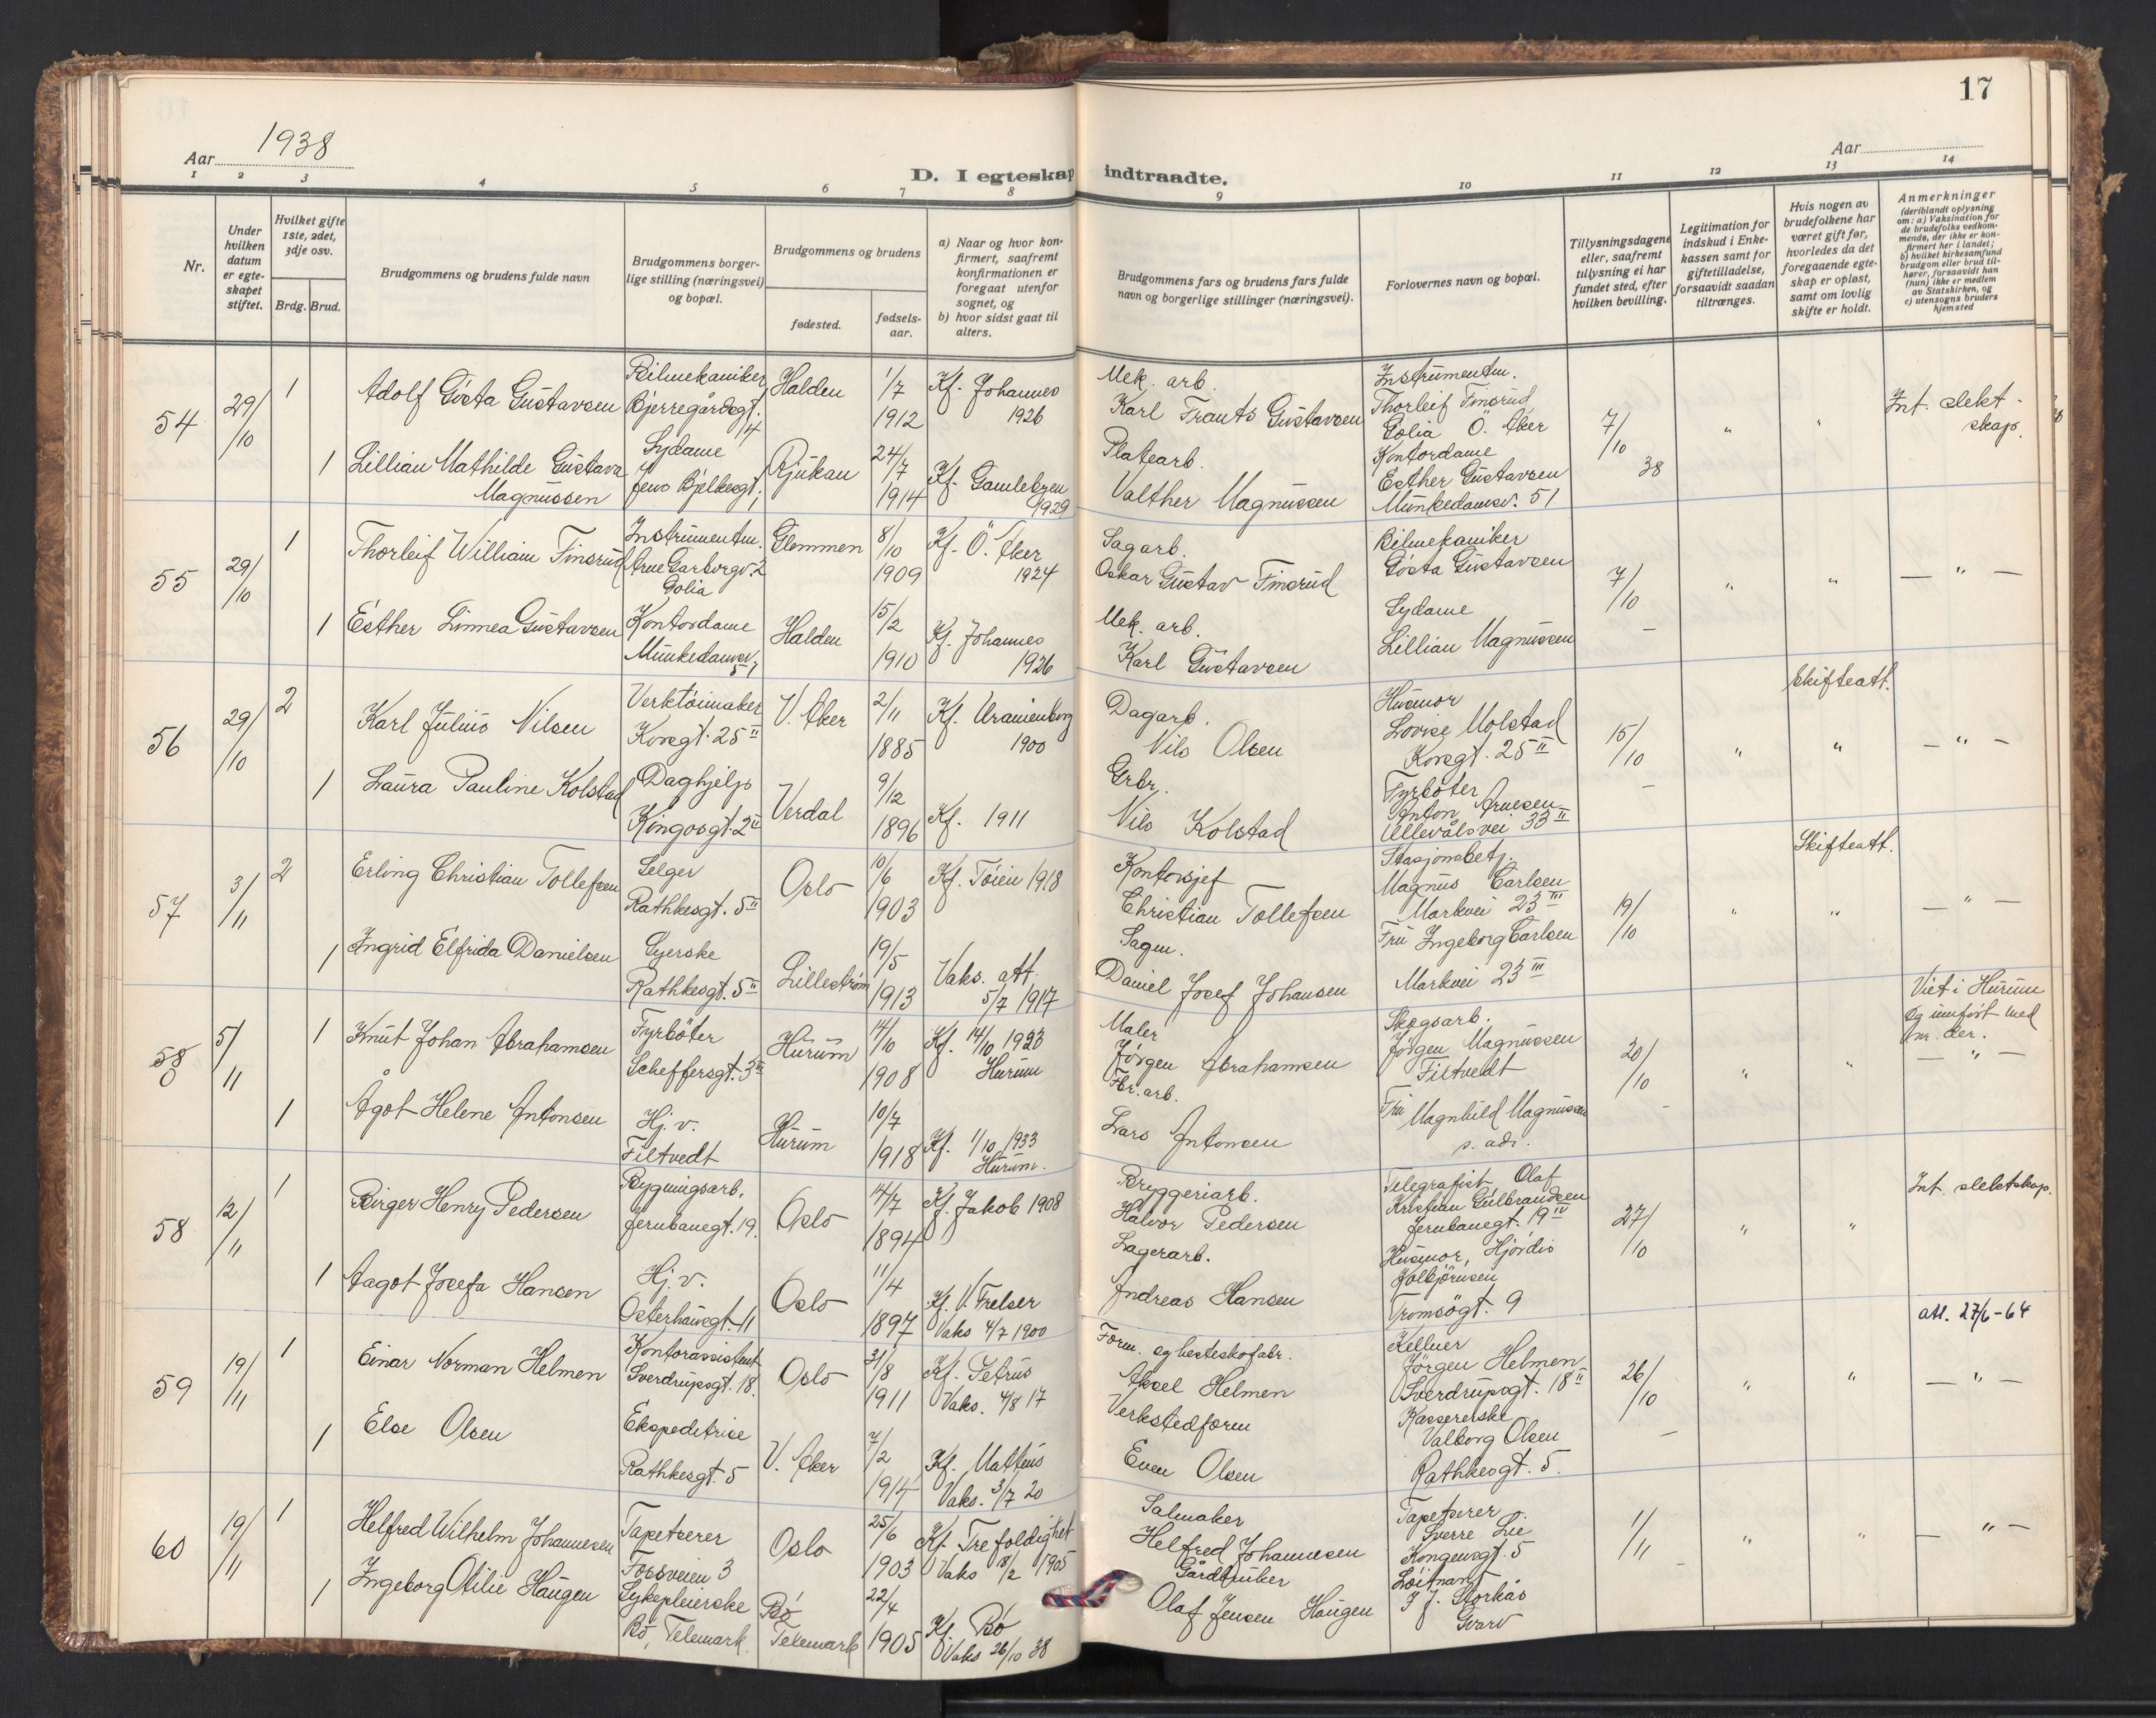 17
Aar 1938
Aar
D. I egteskap indtraadte.
1 2 3 4 5 6 7 8 9 10 11 12 13 14
Nr.
Under hvilken datum er egteskapet stiftet.
Hvilket gifte 1ste, 2det, 3dje osv.
Brdg. Brud.
Brudgommens og brudens fulde navn
Brudgommens borgerlige stilling (næringsvei) og bopæl.
Brudgommens og brudens
fødested.
fødselsaar.
a) Naar og hvor konfirmert, saafremt konfirmationen er foregaat utenfor sognet, og
b) hvor sidst gaat til alters.
Brudgommens fars og brudens fars fulde navn og borgerlige stillinger (næringsvei).
Forlovernes navn og bopæl.
Tillysningsdagene eller, saafremt tillysning ei har fundet sted, efter hvilken bevilling.
Legitimation for indskud i Enkekassen samt for giftetilladelse, forsaavidt saadan tiltrænges.
Hvis nogen av brudefolkene har været gift før, hvorledes da det foregaaende egteskap er opløst, samt om lovlig skifte er holdt.
Anmerkninger
(deriblandt oplysning om: a) Vaksination for de brudefolks vedkommende, der ikke er konfirmert her i landet; b) hvilket kirkesamfund brudgom eller brud tilhører, forsaavidt han (hun) ikke er medlem av Statskirken, og c) utensogns bruders hjemsted
54
29/10
1
Adolf Gösta Gustavsen
Bilmekaniker
Bjerregårdsgt. 14
Halden
1/7 1912
Kf. Johannes 1926
Mek. arb.
Karl Frants Gustavsen
Instrumentm.
Thorleif Finsrud
Golia Ö. Aker
7/10 38
" "
Int. slektskap.
1
Lillian Mathilde Gustava Magnussen
Sydame
Jens Bjelkesgt.
Rjukan
24/7 1914
Kf. Gamlebyen 1929
Platearb.
Valther Magnussen
Kontordame
Esther Gustavsen
Munkedamsv. 51
55
29/10
1
Thorleif William Finsrud
Instrumentm.
Arne Garborgv. 2
Golia
Glemmen
8/10 1909
Kf. Ö. Aker 1924
Sagarb.
Oskar Gustav Finsrud
Bilmekaniker
Gösta Gustavsen
7/10 —
" "
— " —
1
Esther Linnea Gustavsen
Kontordame
Munkedamsv. 51
Halden
15/2 1910
Kf. Johannes 1926
Mek. arb.
Karl Gustavsen
Sydame
Lillian Magnussen
56
29/10
2
Karl Julius Nilsen
Verktöimaker
Korsgt. 25 II
V. Aker
2/11 1885
Kf. Uranienborg 1900
Dagarb.
Nils Olsen
Husmor
Lovise Molstad
Korsgt. 25 II
15/10 —
" "
Skifteatt.
— " —
1
Laura Pauline Kolstad
Daghjelp
Kingosgt. 2 II
Verdal
9/12 1896
Kf. 1911
Grbr.
Nils Kolstad
Fyrböter
Anton Arnesen
Ullevålsvei 33 II
57
3/11
2
Erling Christian Tollefsen
Selger
Rathkesgt. 5 II
Oslo
10/6 1903
Kf. Töien 1918
Kontorsjef
Christian Tollefsen
Stasjonsbetj.
Magnus Carlsen
Markvei 23 III
19/10
" "
Skifteatt.
— " —
1
Ingrid Elfrida Danielsen
Syerske
Rathkesgt. 5 II
Lilleström
19/5 1913
Vaks. att. 5/7 1917
Sagm.
Daniel Josef Johansen
Fru Ingeborg Carlsen
Markvei 23 III
58 0
5/11
1
Knut Johan Abrahamsen
Fyrböter
Scheffersgt. 3 III
Hurum
14/10 1908
Kf. 14/10 1923
Hurum
Maler
Jörgen Abrahamsen
Skogsarb.
Jörgen Magnussen
Filtvedt
20/10 —
" "
Viet i Hurum
og innfört med
nr. der.
— " —
1
Ågot Helene Antonsen
Hj. v.
Filtvedt
Hurum
10/7 1918
Kf. 1/10 1933
Hurum.
Fbr. arb.
Lars Antonsen
Fru Magnhild Magnussen
s. adr.
58
12/11
1
Birger Henry Pedersen
Bygningsarb.
Jernbanegt. 19.
Oslo
14/7 1894
Kf. Jakob 1908
Bryggeriarb.
Halvor Pedersen
Telegrafist Olaf
Kristian Gulbrandsen
Jernbanegt. 19 IV
27/10
" "
Int. slektskap.
1
Aagot Josefa Hansen
Hj. v.
Osterhausgt. 11
Oslo
11/4 1897
Kf. V. Frelser
Vaks 4/7 1900
Lagerarb.
Andreas Hansen
Husmor, Hjördis
Kolbjörnsen
Tromsögt. 9
att. 27/6-64
59
19/11
1
Einar Norman Helmen
Kontorassistent
Sverdrupsgt. 18.
Oslo
31/8 1911
Kf. Petrus
Vaks. 4/8 17
Form. og hesteskofabr.
Aksel Helmen
Kellner
Jörgen Helmen
Sverdrupsgt. 18 II
26/10 —
" "
— " —
1
Else Olsen
Ekspeditrise
Rathkesgt. 5
V. Aker
2/2 1914
Kf. Matteus
Vaks. 3/7 20
Verkstedform
Even Olsen
Kassererske
Valborg Olsen
Rathkesgt. 5.
60
19/11
1
Helfred Wilhelm Johannesen
Tapetserer
Forsveien 3
Oslo
25/6 1903
Kf. Trefoldighet
Vaks 18/2 1905
Salmaker
Helfred Johannesen
Tapetserer
Sverre Lie
Kongensgt. 5
1/11 —
" "
— " —
1
Ingeborg Otilie Haugen
Sykepleierske
Bö, Telemark.
Bö
Telemark
22/4 1905
Kf. Bö
Vaks 26/10 38
Gårdbruker
Olaf Jensen Haugen
Löitnant
J. Storkås
Gvarv